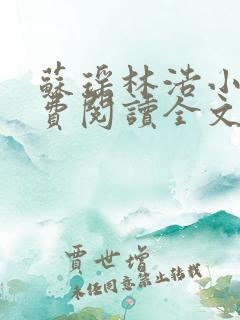 蘇瑤林浩小
費閱讀全文
賈世增
未經同意禁止轉載